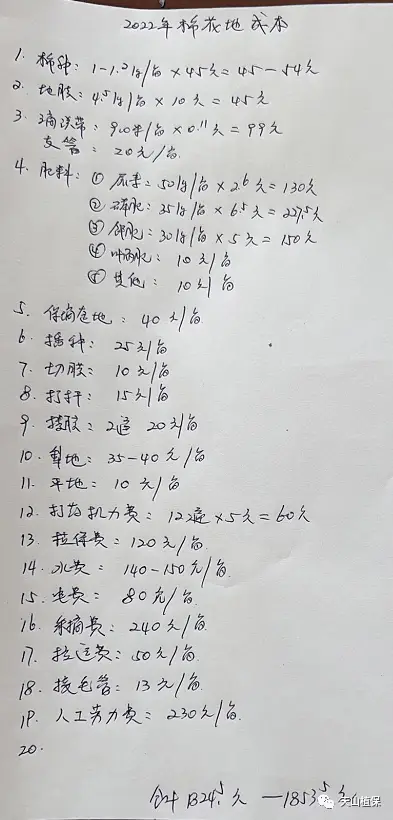 2022年棉花地成本
1. 棉种: 1-1.2kg/亩 × 45元 = 45-54元
2. 地膜: 4.5kg/亩 × 10元 = 45元
3. 滴灌带: 900米/亩 × 0.11元 = 99元
支管: 20元/亩.
4. 肥料: ① 尿素: 50kg/亩 × 2.6元 = 130元
② 磷肥: 35kg/亩 × 6.5元 = 227.5元
③ 钾肥: 30kg/亩 × 5元 = 150元
④ 叶面肥: 10元/亩
⑤ 其他: 10元/亩
5. 地: 40元/亩
6. 播种: 25元/亩
7. 切膜: 10元/亩
8. 打杆: 15元/亩
9. 搂膜: 2遍 20元/亩
10. 犁地: 35-40元/亩
11. 平地: 10元/亩
12. 打药机力费: 12遍×5元=60元
13. 费: 120元/亩.
14. 水费: 140-150元/亩.
15. 电费: 80元/亩.
16. 采摘费: 240元/亩.
17. 拉运费: 50元/亩.
18. 接毛管: 13元/亩
19. 人工劳力费: 230元/亩.
20.
合计 元 —1853.5元
天山植保